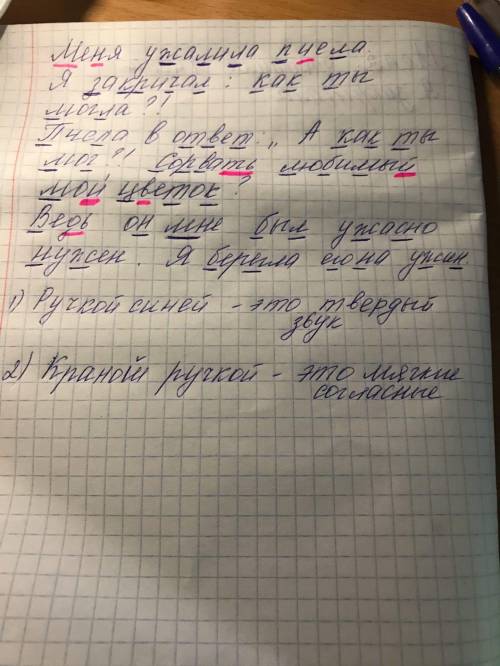 Меня ужалила пчела.
Я закричал: как ты
могла?!
Пчела в ответ: „ А как ты
мог?! сорвать любимый
мой цветок?
Ведь он мне был ужасно
нужен. Я берегла его на ужин
1) Ручкой синей - это твердый
звук
2) Краной ручкой - это мягкие
согласные